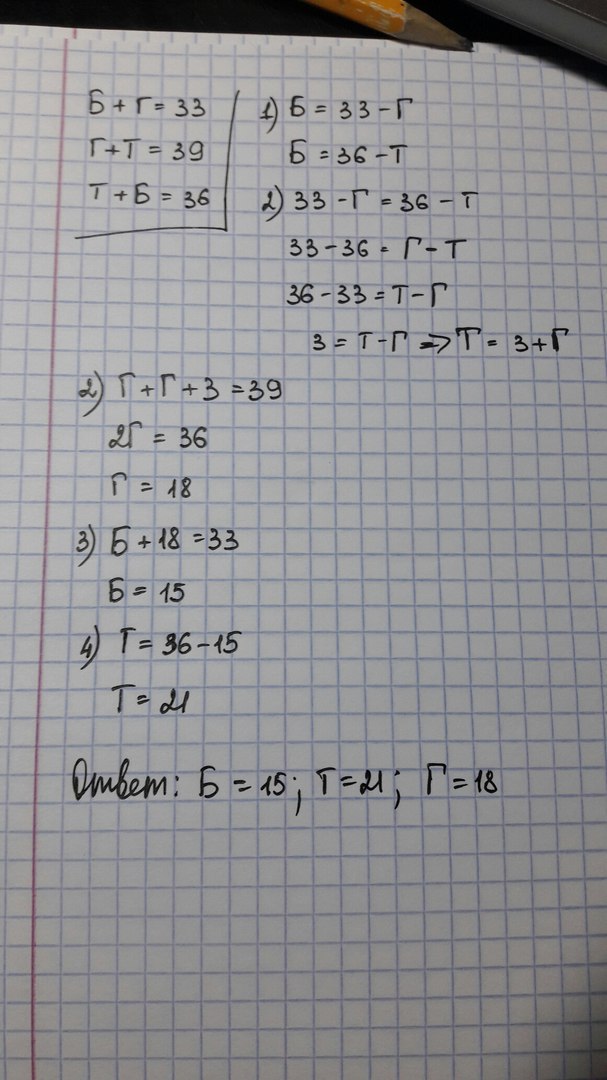 Б + Г = 33
Г + Т = 39
Т + Б = 36
1) Б = 33 - Г
Б = 36 - Т
2) 33 - Г = 36 - Т
33 - 36 = Г - Т
36 - 33 = Т - Г
3 = Т - Г => Т = 3 + Г
2) Г + Г + 3 = 39
2Г = 36
Г = 18
3) Б + 18 = 33
Б = 15
4) Т = 36 - 15
Т = 21
Ответ: Б = 15; Т = 21; Г = 18